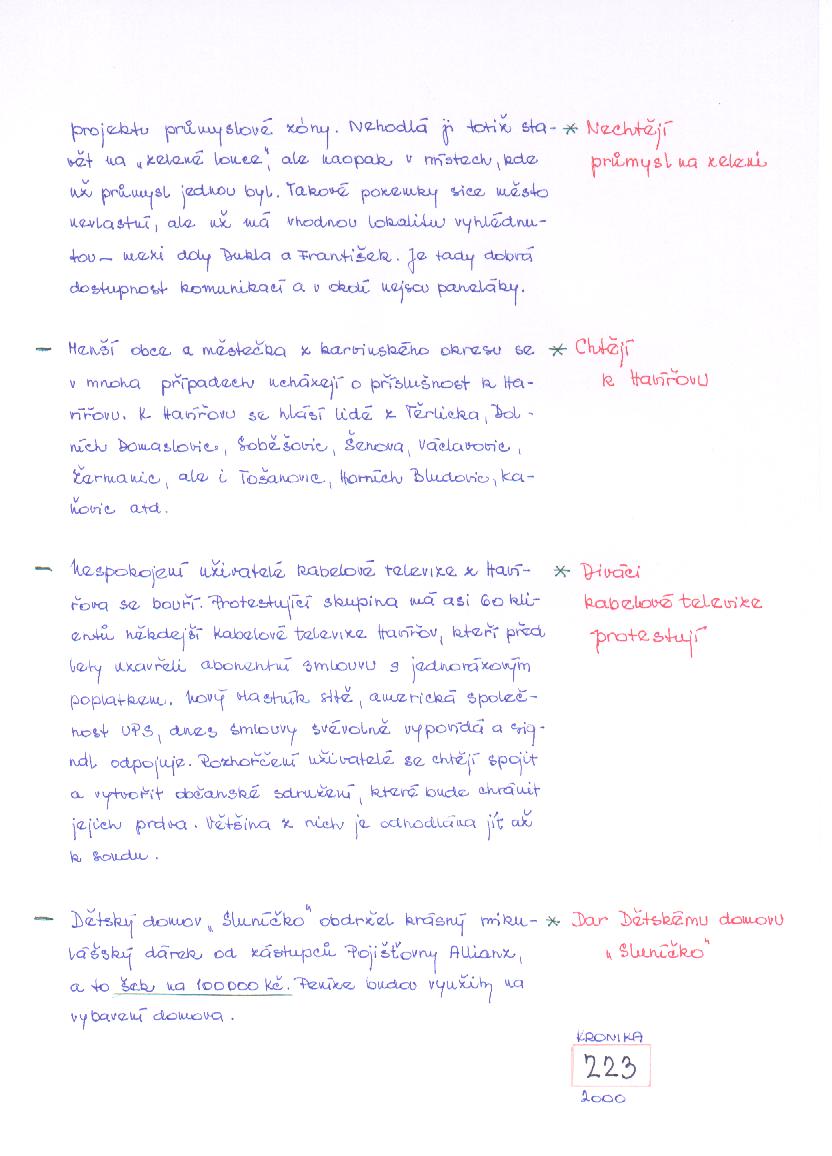 projektu průmyslové zóny. Nehodlá ji totiž sta- * Nechtějí
vět na „zelené louce“, ale naopak v místech, kde průmysl na zeleni
už průmysl jednou byl. Takové pozemky sice město
nevlastní, ale už má vhodnou lokalitu vyhlédnu-
tou – mezi doly Dukla a František. Je tady dobrá
dostupnost komunikací a v okolí nejsou paneláky.
– Menší obce a městečka z karvinského okresu se * Chtějí
v mnoha případech ucházejí o příslušnost k Ha- k Havířovu
vířovu. K Havířovu se hlásí lidé z Těrlicka, Dol-
ních Domaslovic, Soběšovic, Šenova, Václavovic,
Žermanic, ale i Tošanovic, Horních Bludovic, Ka-
ňovic atd.
– Nespokojení uživatelé kabelové televize z Haví- * Diváci
řova se bouří. Protestující skupina má asi 60 kli- kabelové televize
entů někdejší Kabelové televize Havířov, kteří před protestují
lety uzavřeli abonentní smlouvu s jednorázovým
poplatkem. Nový vlastník sítě, americká společ-
nost UPS, dnes smlouvy svévolně vypovídá a sig-
nál odpojuje. Rozhořčení uživatelé se chtějí spojit
a vytvořit občanské sdružení, které bude chránit
jejich práva. Většina z nich je odhodlána jít až
k soudu.
– Dětský domov „Sluníčko“ obdržel krásný miku- * Dar Dětskému domovu
lášský dárek od zástupců Pojišťovny Allianz, „Sluníčko“
a to šek na 100 000 Kč. Peníze budou využity na
vybavení domova.
KRONIKA
223
2000